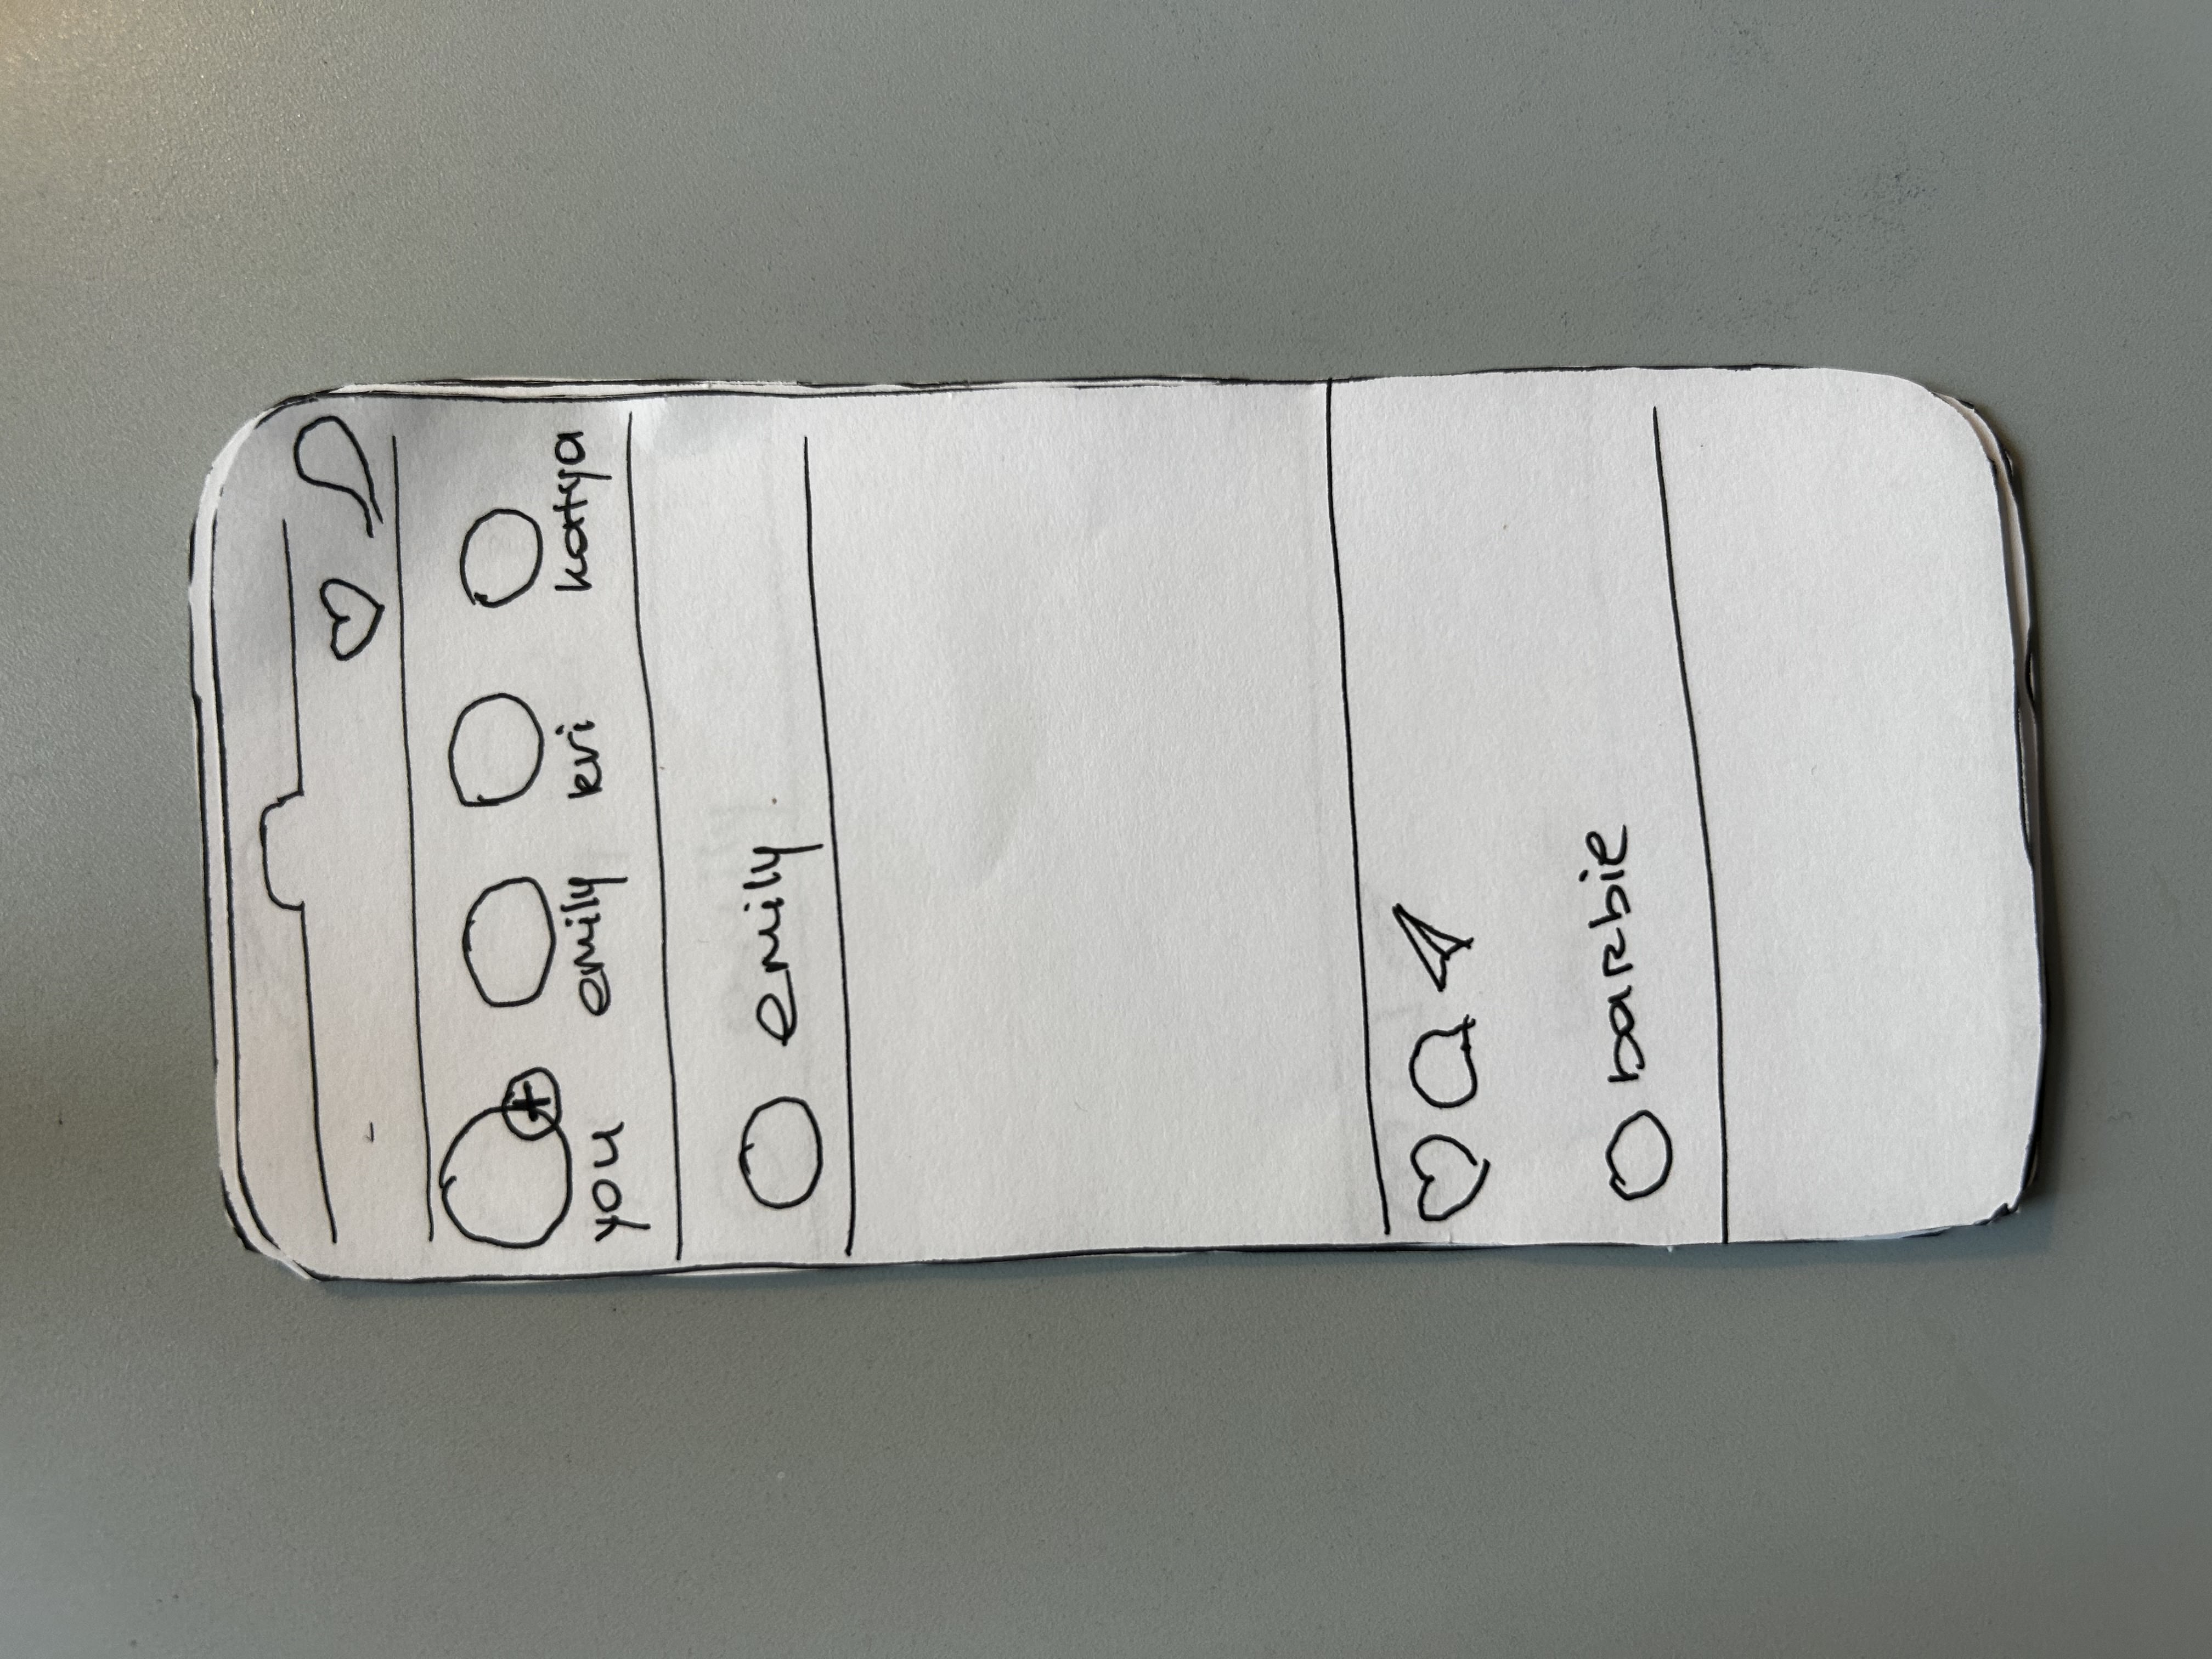 you emily kri katya
emily
barbie